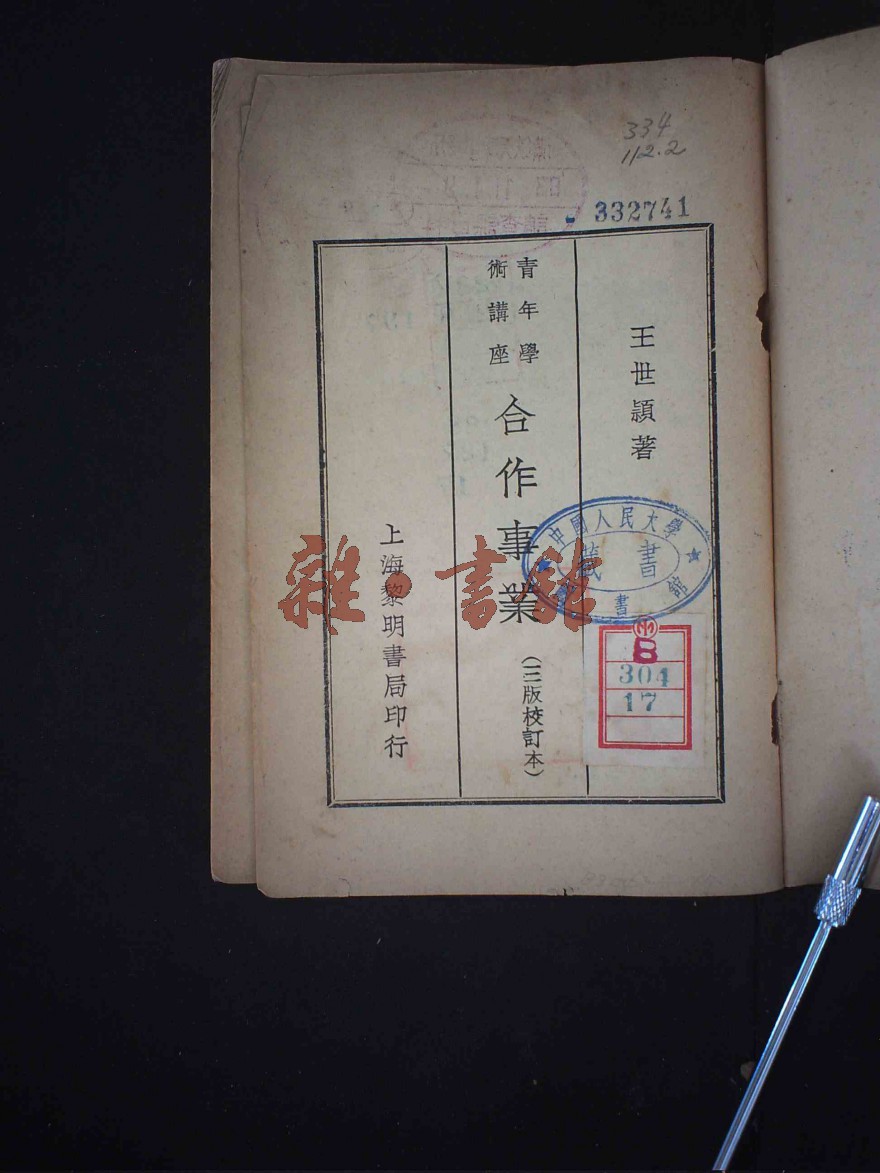 334
112.2
332741
王世頴著
青年學
術講座
合作事業
（三版校訂本）
上海黎明書局印行
中國人民大學
藏書
書
B
304
17
雜·書館